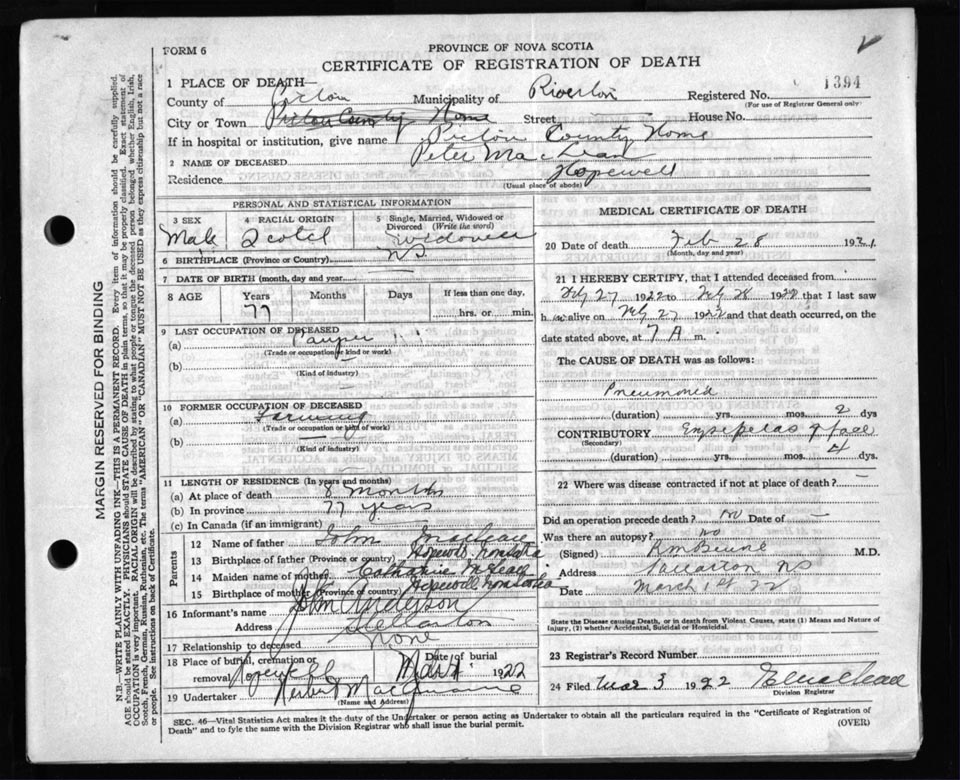 FORM 6
PROVINCE OF NOVA SCOTIA
CERTIFICATE OF REGISTRATION OF DEATH
1 PLACE OF DEATH—
County of Pictou Municipality of Riverton Registered No. 1394
(For use of Registrar General only)
City or Town Pictou County Home Street House No.
If in hospital or institution, give name Pictou County Home
2 NAME OF DECEASED Peter MacLean
Residence Hopewell
(Usual place of abode)
PERSONAL AND STATISTICAL INFORMATION
3 SEX Male
4 RACIAL ORIGIN Scotch
5 Single, Married, Widowed or Divorced (Write the word) Widower
6 BIRTHPLACE (Province or Country) N.S.
7 DATE OF BIRTH (month, day and year)
8 AGE Years 77 Months Days If less than one day, hrs. or min.
9 LAST OCCUPATION OF DECEASED
(a) Pauper
(Trade or occupation or kind or work)
(b)
(Kind of industry)
10 FORMER OCCUPATION OF DECEASED
(a) Farming
(Trade or occupation or kind of work)
(b)
(Kind of industry)
11 LENGTH OF RESIDENCE (In years and months)
(a) At place of death 8 months
(b) In province 77 years
(c) In Canada (if an immigrant)
Parents
12 Name of father John MacLean
13 Birthplace of father (Province or country) Hopewell Nova Scotia
14 Maiden name of mother Catharine McLean
15 Birthplace of mother (Province or country) Hopewell Nova Scotia
16 Informant's name John Anderson
Address Stellarton
17 Relationship to deceased None
18 Place of burial, cremation or removal Hopewell Date of burial Mar 1922
19 Undertaker Herbert
(Name and Address)
MEDICAL CERTIFICATE OF DEATH
20 Date of death Feb 28 192
(Month, day and year)
21 I HEREBY CERTIFY, that I attended deceased from
Feby 27 1922 to Feby 28 1922 that I last saw
h im alive on Feby 27 1922 and that death occurred, on
date stated above, at 7 A m.
The CAUSE OF DEATH was as follows:
Pneumonia
(duration) yrs. mos. 2 dys
CONTRIBUTORY Erysipelas of face
(Secondary)
(duration) yrs. mos. 4 dys.
22 Where was disease contracted if not at place of death? —
Did an operation precede death? No Date of —
Was there an autopsy? No
(Signed) M.D.
Address Stellarton NS
Date March 1st 22
State the Disease causing Death, or in death from Violent Causes, state (1) Means and Nature of
Injury, (2) whether Accidental, Suicidal or Homicidal.
23 Registrar's Record Number
24 Filed Mar 3 1922
Division Registrar
SEC. 46—Vital Statistics Act makes it the duty of the Undertaker or person acting as Undertaker to obtain all the particulars required in the "Certificate of Registration of
Death" and to fyle the same with the Division Registrar who shall issue the burial permit.
(OVER)
MARGIN RESERVED FOR BINDING
N.B.—WRITE PLAINLY WITH UNFADING INK—THIS IS A PERMANENT RECORD. Every item of information should be carefully supplied.
AGE should be stated EXACTLY. PHYSICIANS should STATE CAUSE OF DEATH in plain terms, so that it may be properly classified. Exact statement of
OCCUPATION is very important. RACIAL ORIGIN will be described by stating to what people or tongue the deceased person belonged whether English, Irish,
Scotch, French, German, Russian, Ruthenian, etc. The terms "AMERICAN" OR "CANADIAN" MUST NOT BE USED as they express citizenship but not a race
or people. See instructions on back of Certificate.